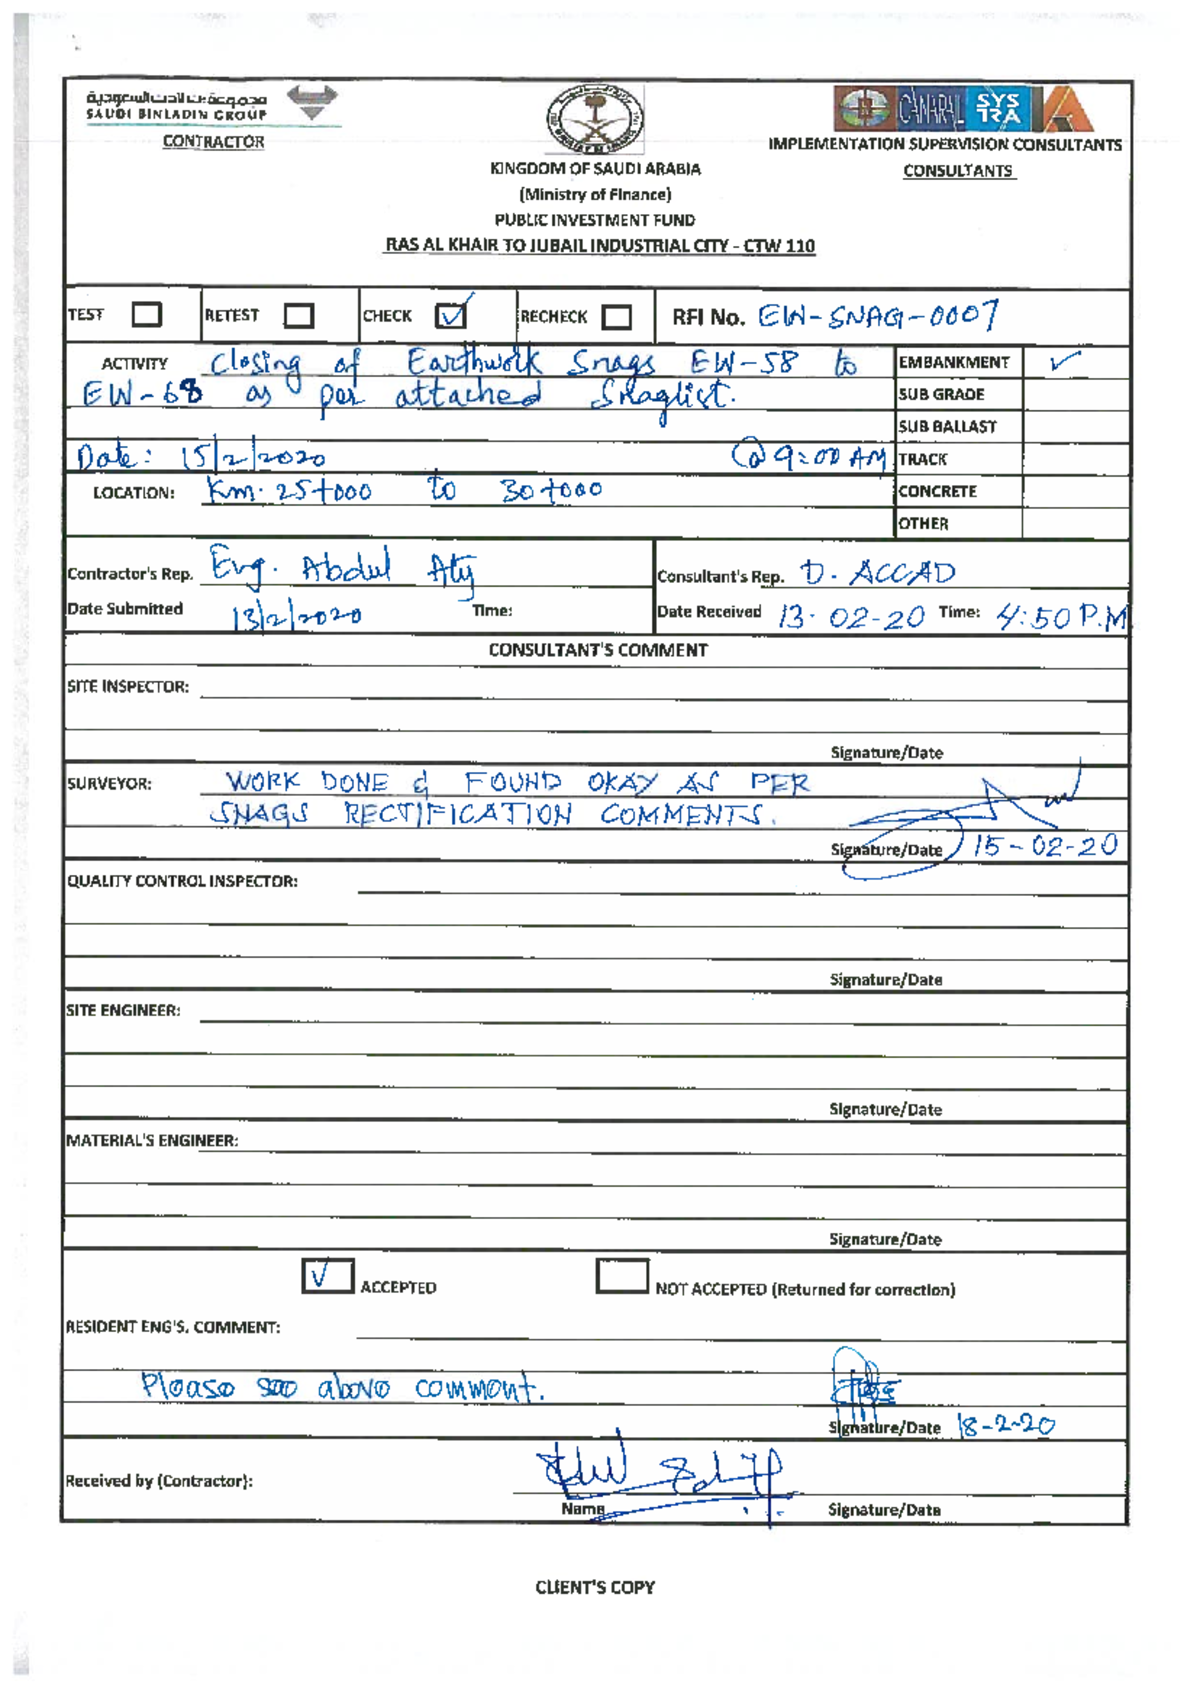 مجموعة بن لادن السعودية
SAUDI BINLADIN GROUP
CONTRACTOR
CANARAIL SYSTRA
IMPLEMENTATION SUPERVISION CONSULTANTS
CONSULTANTS
KINGDOM OF SAUDI ARABIA
(Ministry of Finance)
PUBLIC INVESTMENT FUND
RAS AL KHAIR TO JUBAIL INDUSTRIAL CITY - CTW 110
TEST RETEST CHECK ✓ RECHECK RFI No. EW-SNAG-0007
ACTIVITY Closing of Earthwork Snags EW-58 to
EW-68 as per attached Snaglist.
Date: 15/2/2020 @ 9:00 AM
EMBANKMENT ✓
SUB GRADE
SUB BALLAST
TRACK
CONCRETE
OTHER
LOCATION: Km. 25+000 to 30+000
Contractor's Rep. Eng. Abdul Aty
Date Submitted 13/2/2020 Time:
Consultant's Rep. D. ACCAD
Date Received 13-02-20 Time: 4:50 P.M
CONSULTANT'S COMMENT
SITE INSPECTOR:
Signature/Date
SURVEYOR: WORK DONE & FOUND OKAY AS PER
SNAGS RECTIFICATION COMMENTS.
Signature/Date 15-02-20
QUALITY CONTROL INSPECTOR:
Signature/Date
SITE ENGINEER:
Signature/Date
MATERIAL'S ENGINEER:
Signature/Date
✓ ACCEPTED NOT ACCEPTED (Returned for correction)
RESIDENT ENG'S. COMMENT:
Please see above comment.
Signature/Date 18-2-20
Received by (Contractor):
Name Signature/Date
CLIENT'S COPY